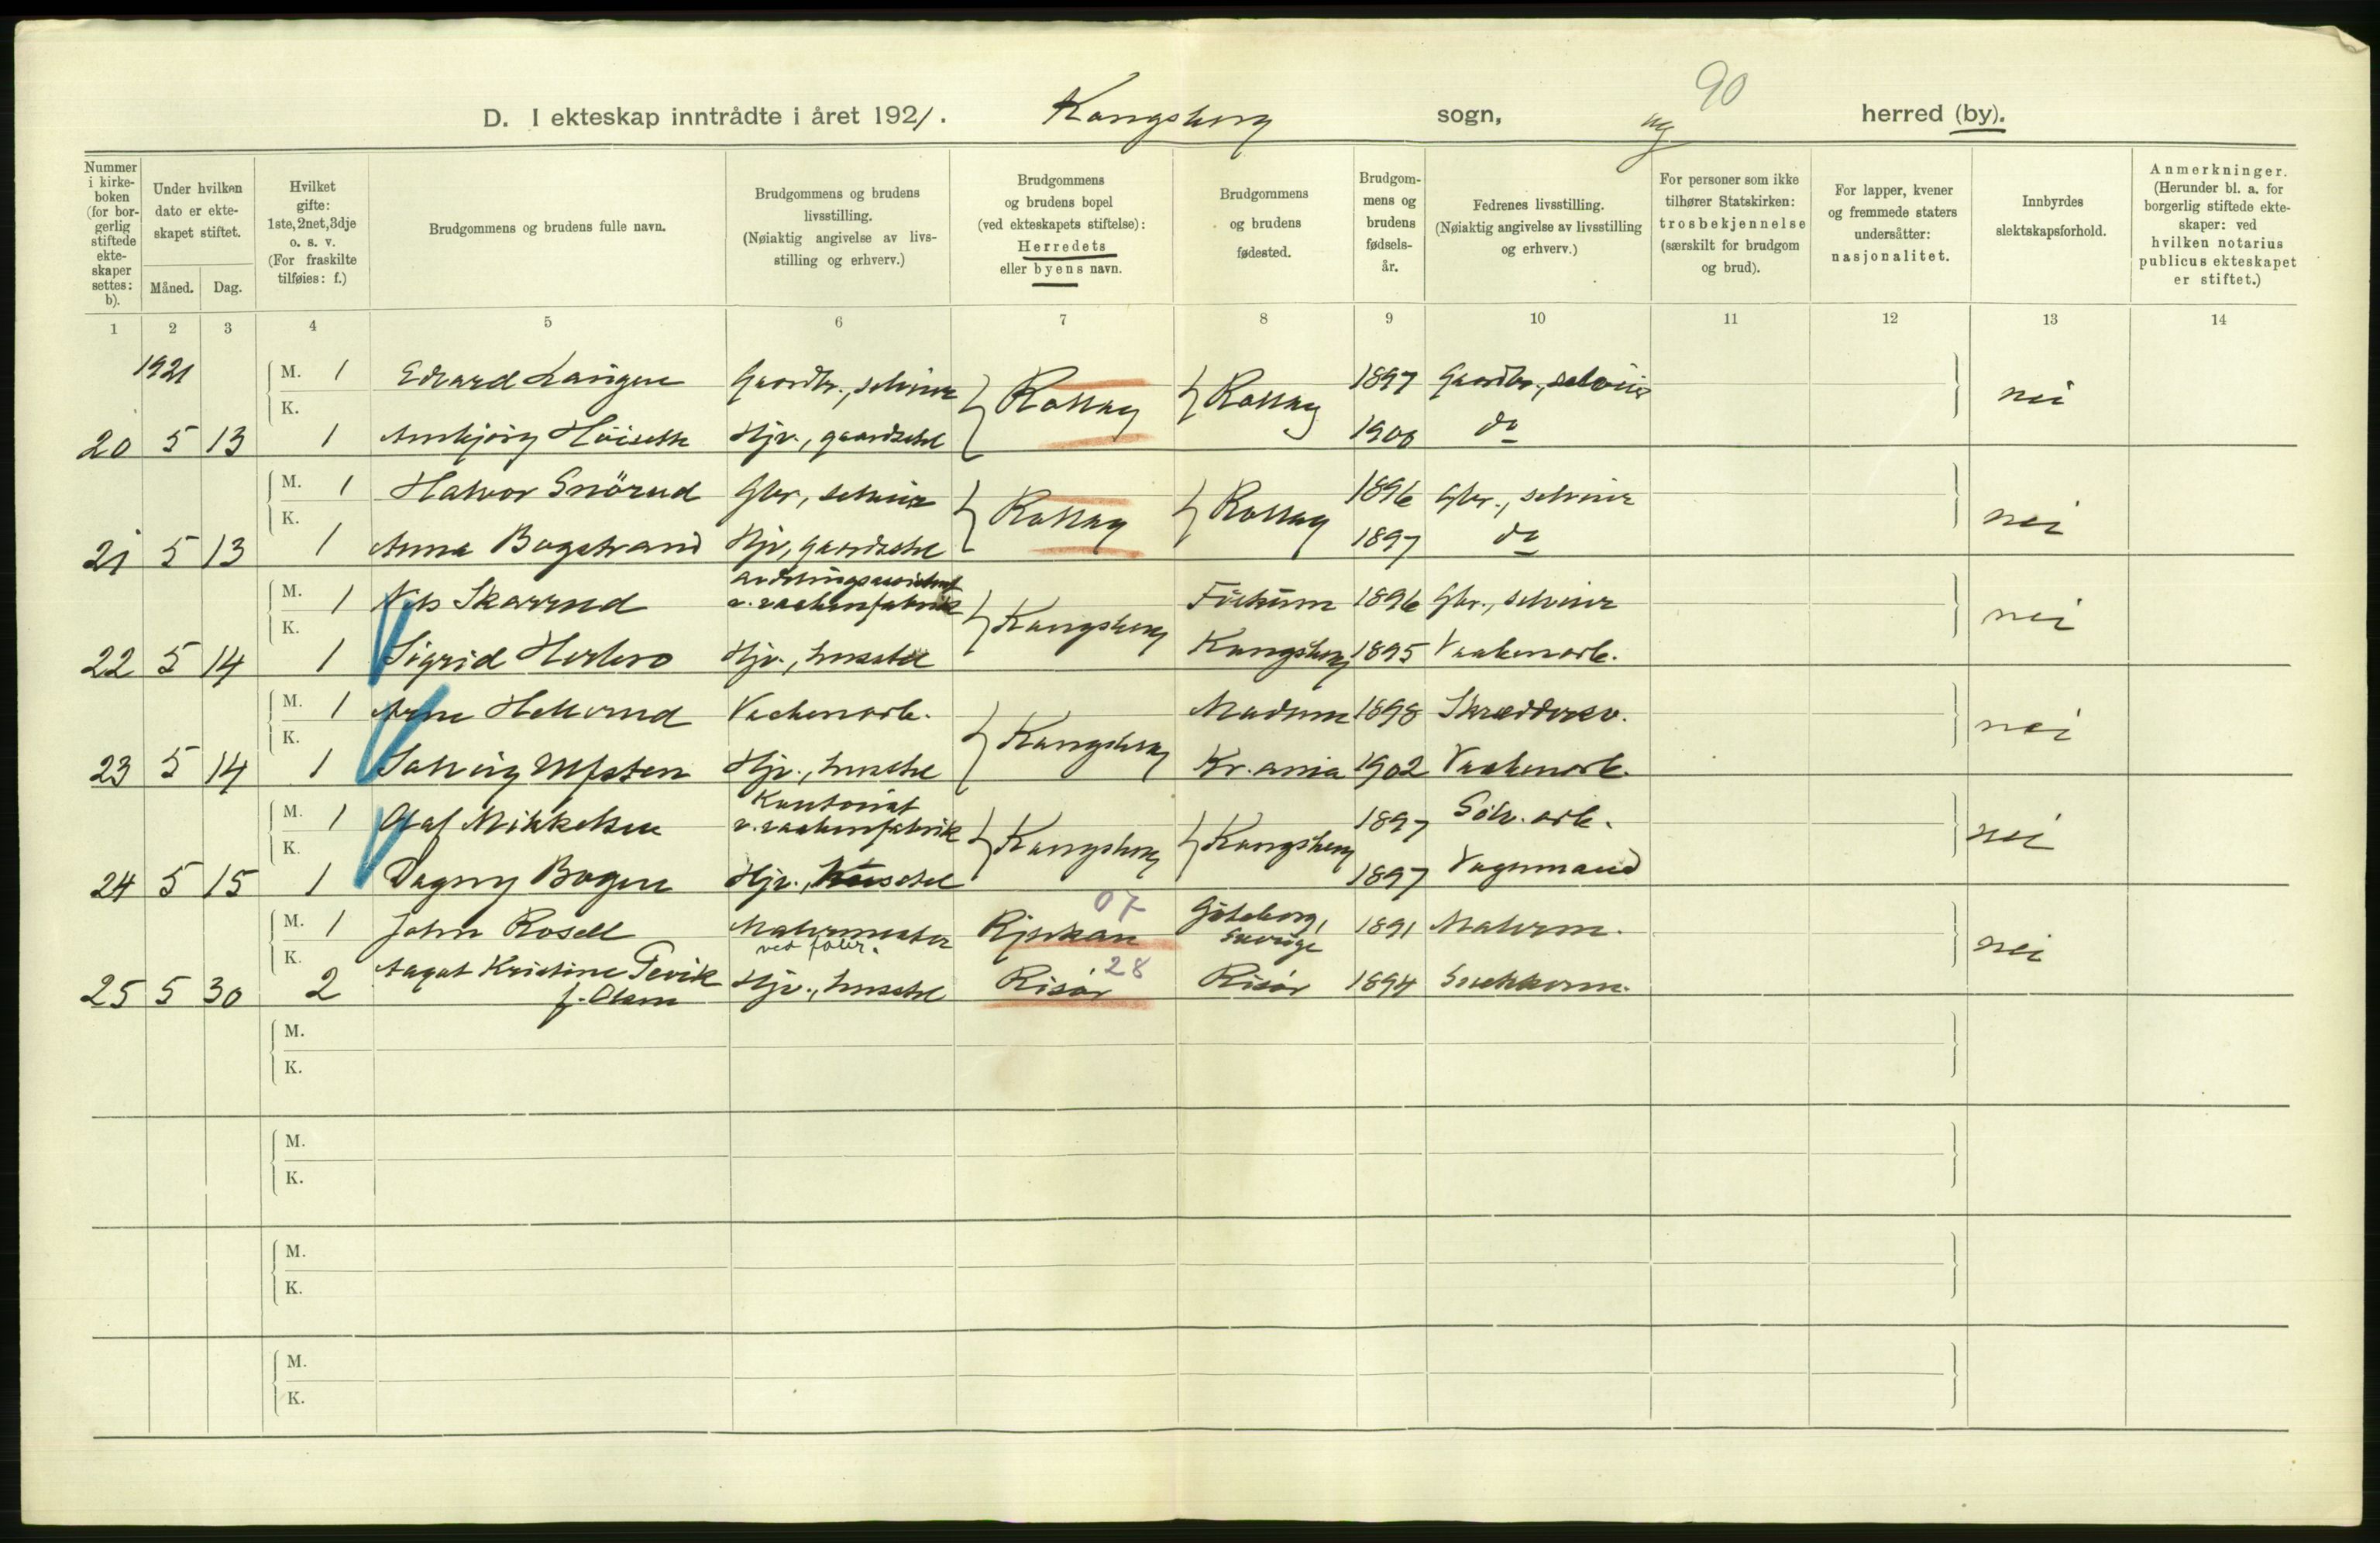 90
D. I ekteskap inntrådte i året 1921. Kongsberg sogn, og herred (by).
Nummer i kirke- boken (for bor- gerlig stiftede ekte- skaper settes: b).
Under hvilken dato er ekte- skapet stiftet.
Måned. Dag.
Hvilket gifte: 1ste, 2net, 3dje o. s. v. (For fraskilte tilføies: f.)
Brudgommens og brudens fulle navn.
Brudgommens og brudens livsstilling. (Nøiaktig angivelse av livs- stilling og erhverv.)
Brudgommens og brudens bopel (ved ekteskapets stiftelse): Herredets eller byens navn.
Brudgommens og brudens fødested.
Brudgom- mens og brudens fødsels- år.
Fedrenes livsstilling. (Nøiaktig angivelse av livsstilling og erhverv.)
For personer som ikke tilhører Statskirken: trosbekjennelse (særskilt for brudgom og brud).
For lapper, kvener og fremmede staters undersåtter: nasjonalitet.
Innbyrdes slektskapsforhold.
Anmerkninger. (Herunder bl. a. for borgerlig stiftede ekte- skaper: ved hvilken notarius publicus ekteskapet er stiftet.)
1 2 3 4 5 6 7 8 9 10 11 12 13 14
1921 M. 1 Edvard Langen Gaardbr., selveier Rollag Rollag 1897 Gaardbr., selveier nei
20 5 13 K. 1 Hjv., gaardstel 1900 do
M. 1 Halvor Snörud Gbr., selveier Rollag Rollag 1896 Gbr., selveier nei
21 5 13 K. 1 Anna Bogstrand Hjv., gaardstel 1897 do
M. 1 Nils Skarrud v. vaabenfabrik Kongsberg 1896 Gbr., selveier nei
22 5 14 K. 1 Sigrid Hjv., husstel Kongsberg 1895 Vaabenarb.
M. 1 Arne Vaabenarb. Kongsberg Modum 1898 nei
23 5 14 K. 1 Solveig Ulfsten Hjv., husstel Kr.ania 1902 Vaabenarb.
M. 1 Olaf Mikkelsen Kontorist v. vaabenfabrik Kongsberg Kongsberg 1897 Sölv. arb. nei
24 5 15 K. 1 Dagny Bogen Hjv., husstel 1897 Vognmand
M. 1 John Rosell Malermester Rjukan 07 Göteborg, Sverige 1891 Malerm. nei
25 5 30 K. 2 Aagot Kristine Tevik f. Olsen Hjv., husstel Risör 28 Risör 1894 Snekkerm.
M.
K.
M.
K.
M.
K.
M.
K.